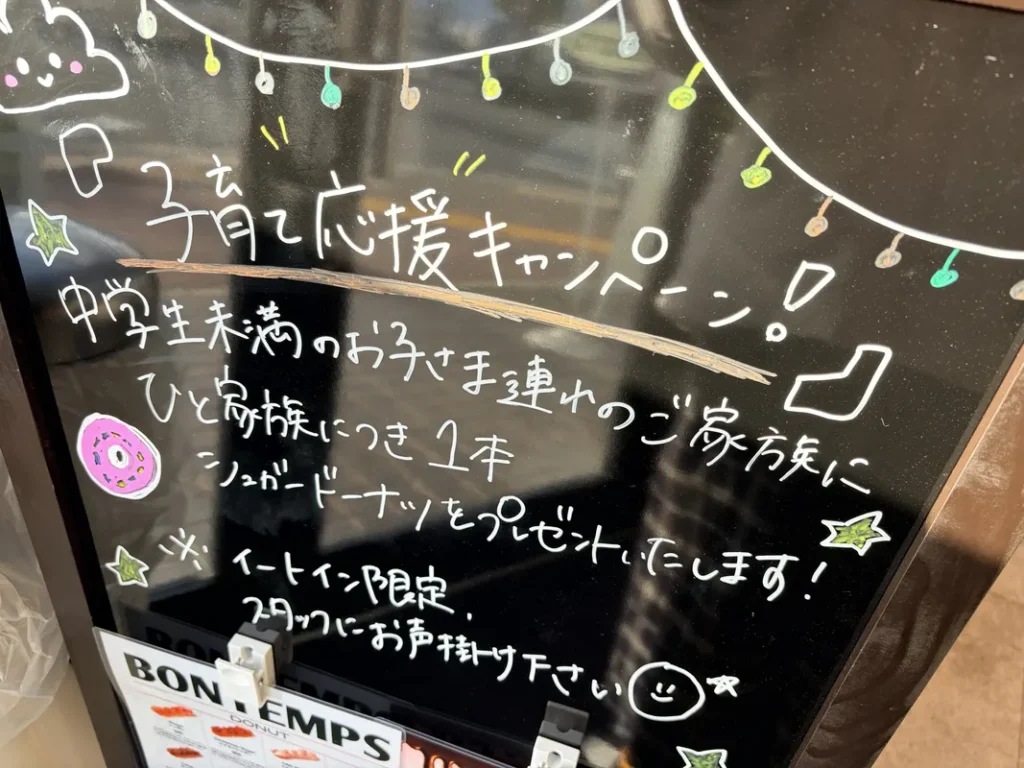 『子育て応援キャンペーン!』
中学生未満のお子さま連れのご家族に
ひと家族につき1本
シュガードーナツをプレゼントいたします!
※イートイン限定.
スタッフにお声掛け下さい
BON TEMPS
DONUT